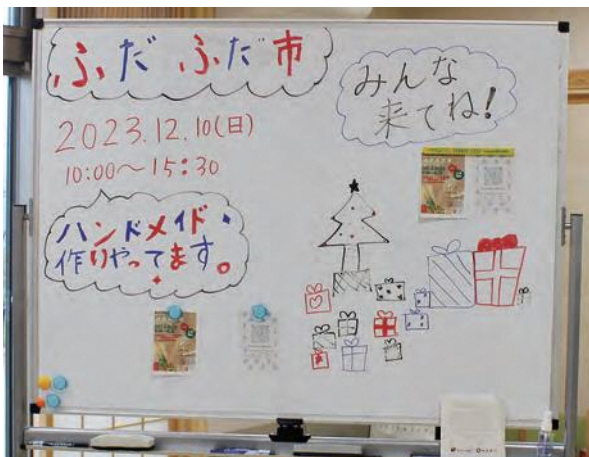 ふだふだ市
みんな
来てね!
2023.12.10(日)
10:00〜15:30
ハンドメイド
作りやってます。